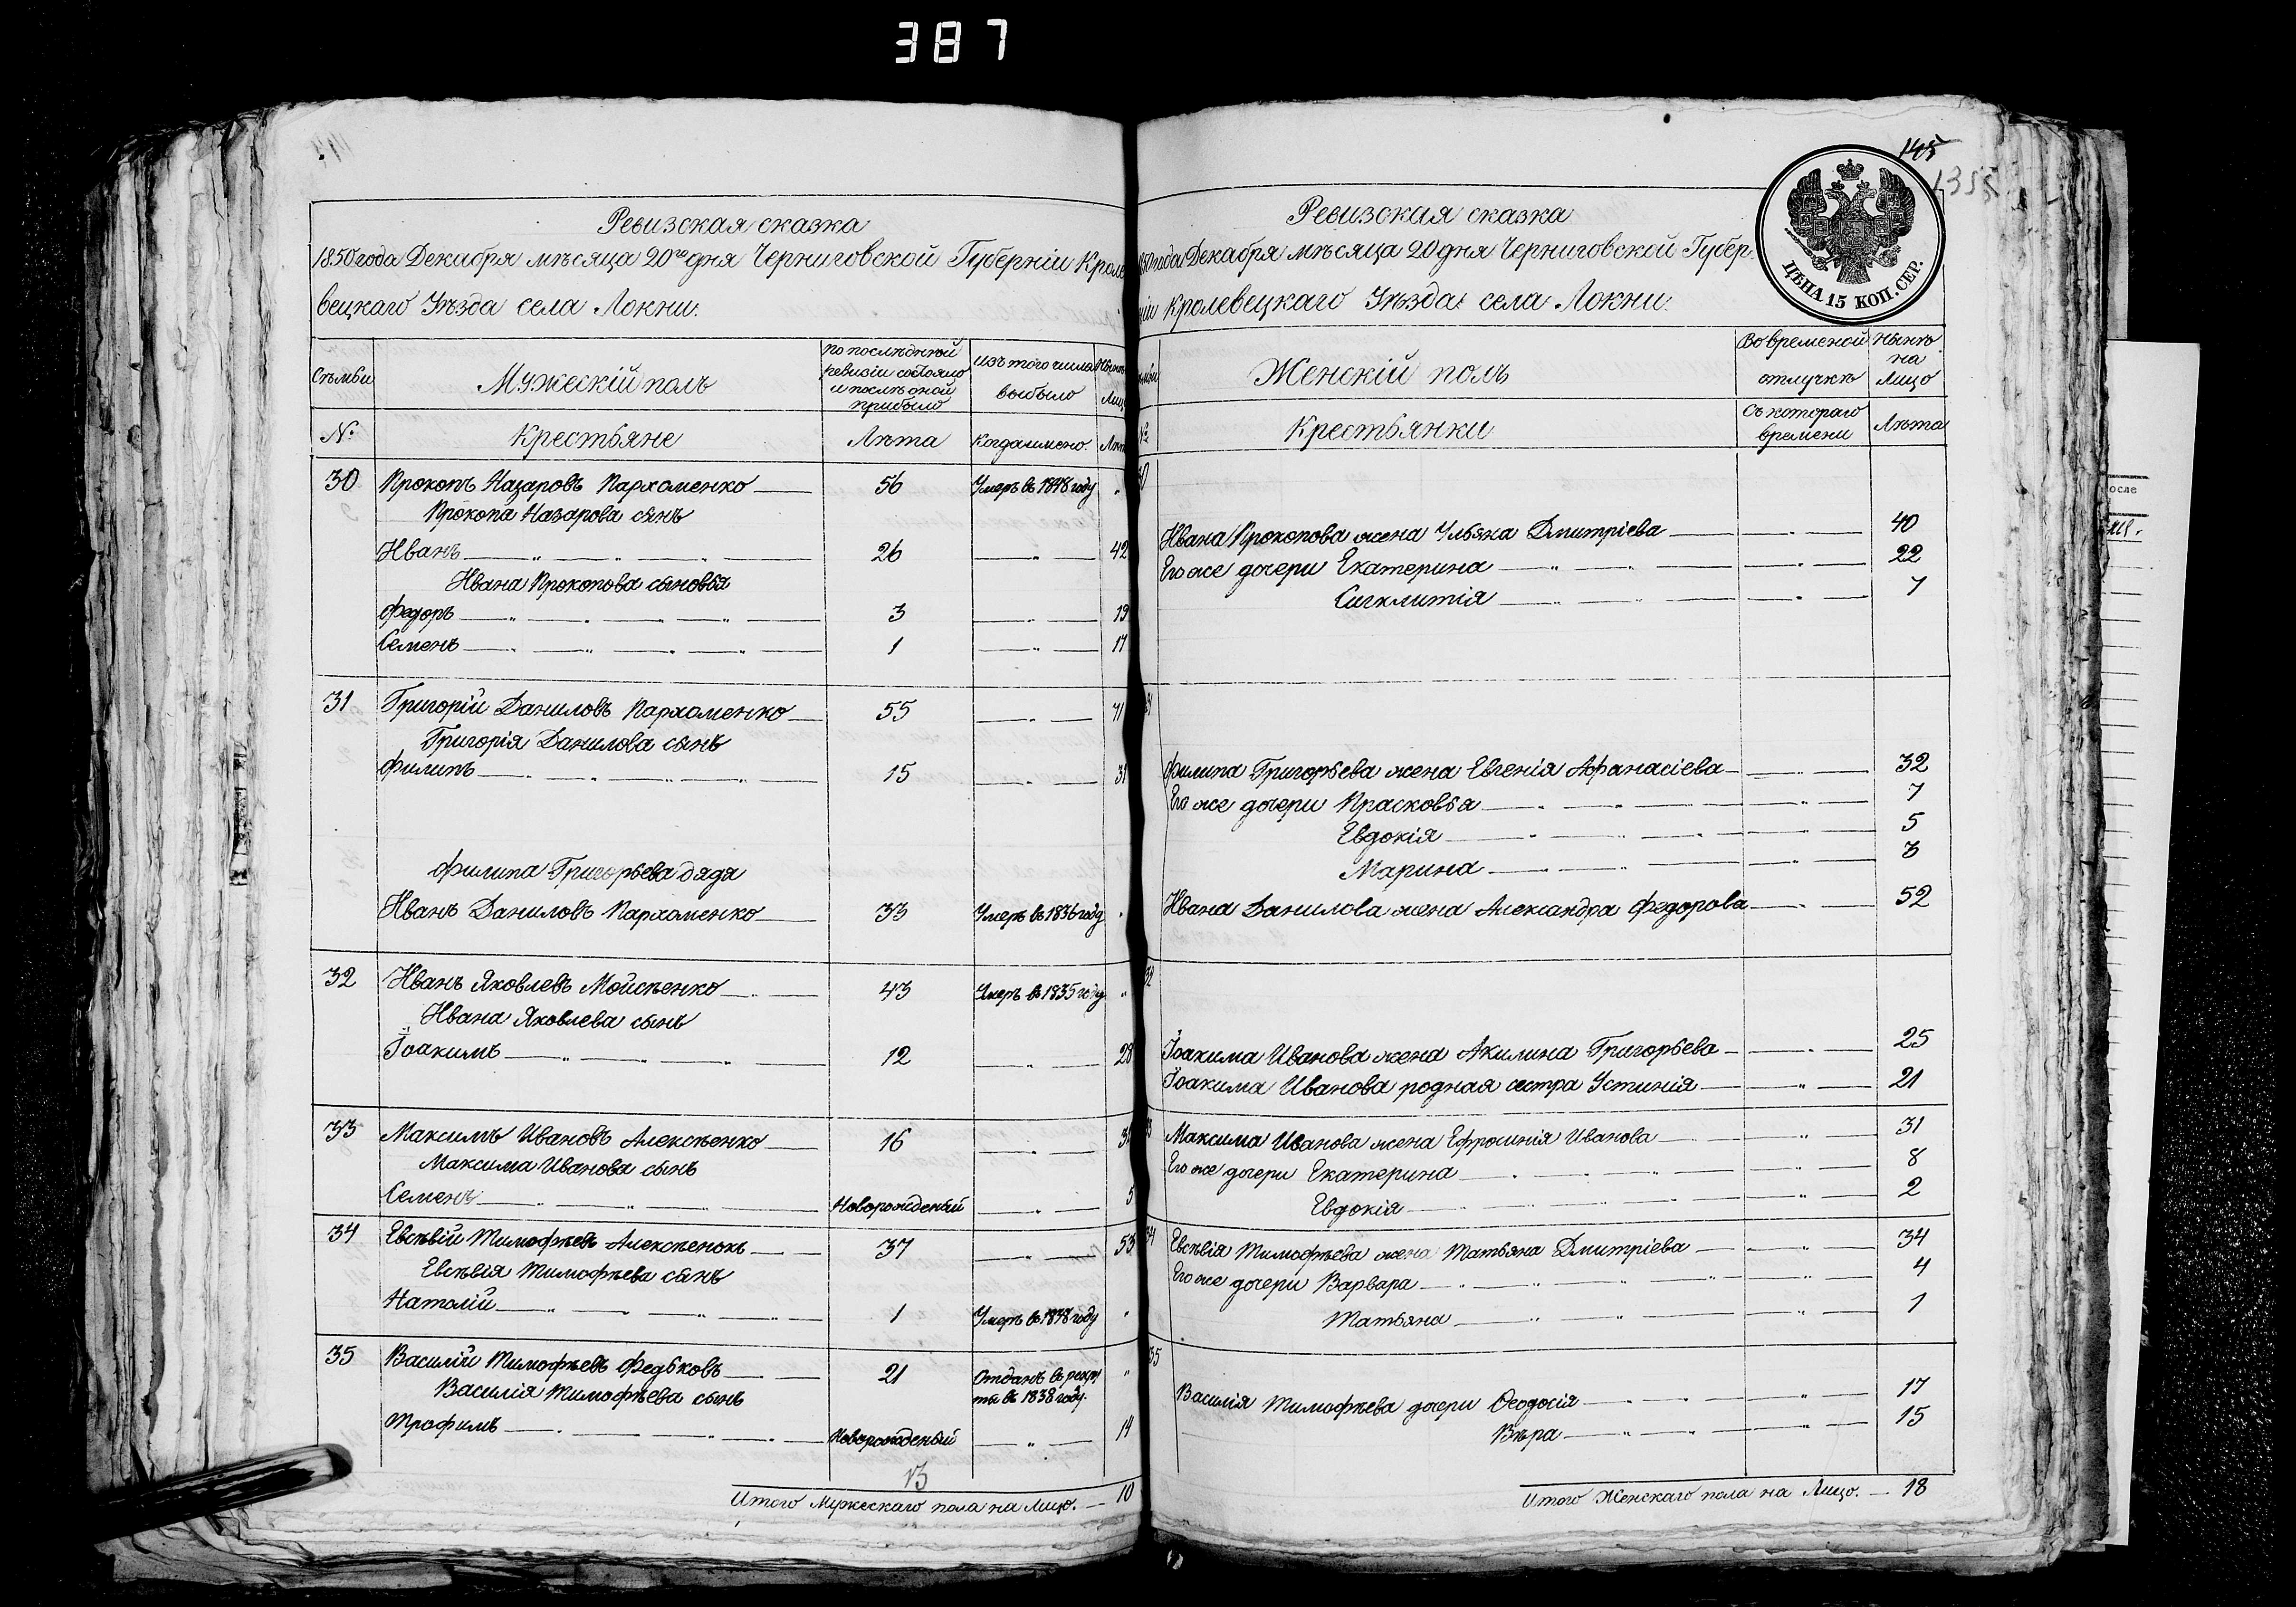 387
145
1355
ЦѢНА 15 КОП. СЕР.
Ревизская сказка
1850 года Декабря мѣсяца 20го дня Черниговской Губерніи Кроле
вецкаго Уѣзда села Локни.
Семьи
Мужескій полъ
По послѣдней ревизіи состояло и послѣ оной прибыло
Изъ того числа выбыло
Нынѣ Лиц
№
Крестьяне
Лѣта
Когда имено.
Лѣт
30 Прокопъ Назаровъ Пархоменко 56 Умеръ въ 1848 году "
Прокопа Назарова сынъ
Иванъ 26 " 42
Ивана Прокопова сыновья
Федоръ 3 " 19
Семенъ 1 " 17
31 Григорій Даниловъ Пархоменко 55 " 71
Григорія Данилова сынъ
Филипъ 15 " 31
Филипа Григорьева дядя
Иванъ Даниловъ Пархоменко 33 Умеръ въ 1836 году "
32 Иванъ Яковлевъ Мойсѣенко 43 Умеръ въ 1835 году "
Ивана Яковлева сынъ
Іоакимъ 12 " 28
33 Максимъ Ивановъ Алексѣенко 16 "
Максима Иванова сынъ
Семенъ Новорожденый " 5
34 Евсѣвій Тимофѣевъ Алексѣенокъ 37 " 53
Евсѣвія Тимофѣева сынъ
Натолій 1 Умеръ въ 1848 году "
35 Василій Тимофѣевъ Федьковъ 21 Отданъ в рекру "
ты въ 1838 году.
Василія Тимофѣева сынъ
Трофимъ Новорожденый " 14
13
Итого Мужескаго пола на Лицо. 10
Ревизская сказка
1850 года Декабря мѣсяца 20 дня Черниговской Губер
ніи Кролевецкаго Уѣзда села Локни.
Женскій полъ
Во временой отлучкѣ
Нынѣ на Лицо
№
Крестьянки
Съ котораго времени
Лѣта
30
Ивана Прокопова жена Ульяна Дмитріева " 40
Его же дочери Екатерина " 22
Сигклитія " 7
31
Филипа Григорьева жена Евгенія Афанасіева " 32
Его же дочери Прасковья " 7
Евдокія " 5
Марина " 3
Ивана Данилова жена Александра Федорова " 52
32
Іоакима Иванова жена Акилина Григорьева " 25
Іоакима Иванова родная сестра Устинія " 21
33 Максима Иванова жена Ефросинія Иванова " 31
Его же дочери Екатерина " 8
Евдокія " 2
34 Евсѣвія Тимофѣева жена Татьяна Дмитріева " 34
Его же дочери Варвара " 4
Татьяна " 1
35
Василія Тимофѣева дочери Ѳеодосія " 17
Вѣра " 15
Итого Женскаго пола на Лицо. 18
осле